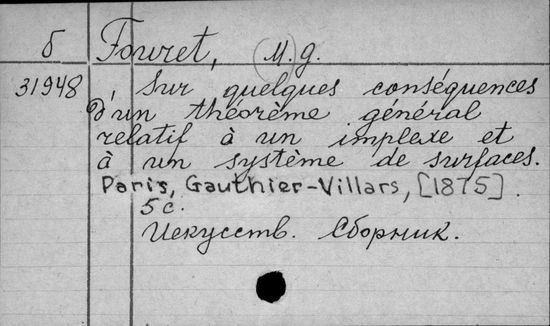 б Fouret, (M.) g.
31948 Sur quelques conséquences
d'un théorème général
relatif à un implexe et
à un système de surfaces.
Paris, Gauthier-Villars, [1875].
5 с.
Искусств. Сборник.